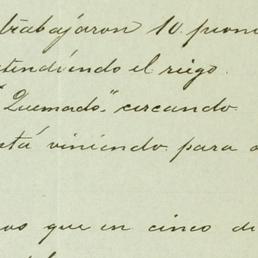 trabajaron 10 peon
atendiendo el riego.
"Quemado" cercando
está viniendo para
que en cinco di